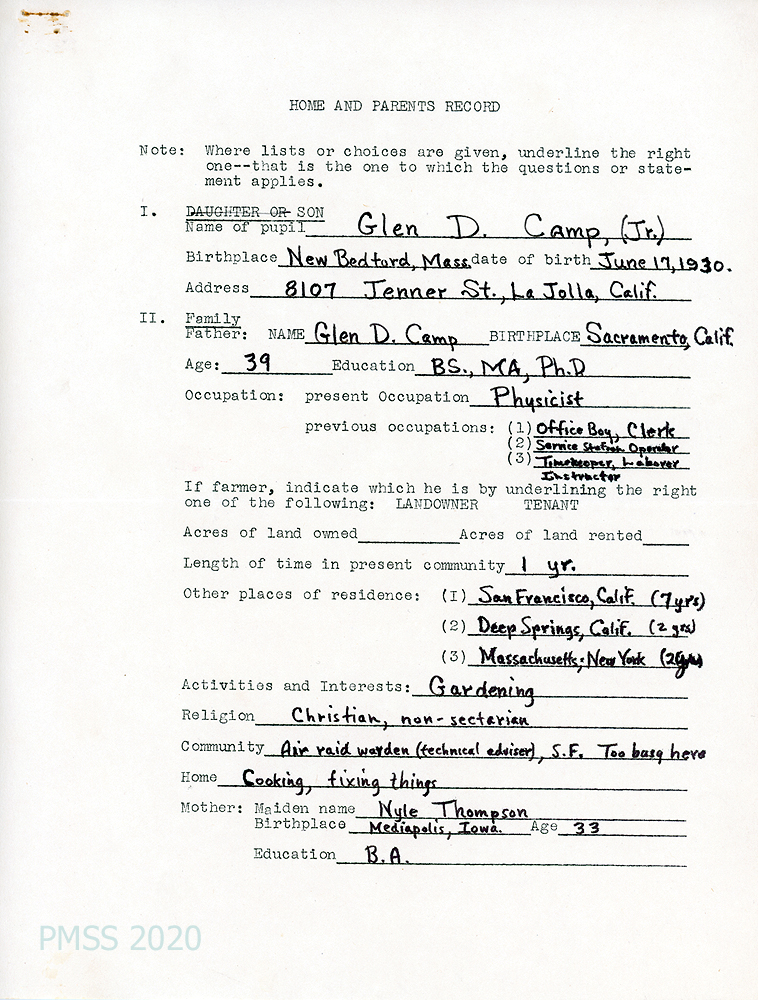 HOME AND PARENTS RECORD
Note: Where lists or choices are given, underline the right
one--that is the one to which the questions or state-
ment applies.
I. DAUGHTER OR SON
Name of pupil Glen D. Camp, (Jr.)
Birthplace New Bedford, Mass. date of birth June 17, 1930.
Address 8107 Jenner St., La Jolla, Calif.
II. Family
Father: NAME Glen D. Camp BIRTHPLACE Sacramento, Calif.
Age: 39 Education BS., MA, Ph.D
Occupation: present Occupation Physicist
previous occupations: (1) Office Boy, Clerk
(2) Service Station Operator
(3) Timekeeper, Laborer
Instructor
If farmer, indicate which he is by underlining the right
one of the following: LANDOWNER TENANT
Acres of land owned Acres of land rented
Length of time in present community 1 yr.
Other places of residence: (1) San Francisco, Calif. (7 yrs)
(2) Deep Springs, Calif. (2 yrs)
(3) Massachusetts; New York
Activities and Interests: Gardening
Religion Christian, non-sectarian
Community Air raid warden (technical adviser), S.F. Too busy here
Home Cooking, fixing things
Mother: Maiden name Nyle Thompson
Birthplace Mediapolis, Iowa. Age 33
Education B.A.
PMSS 2020